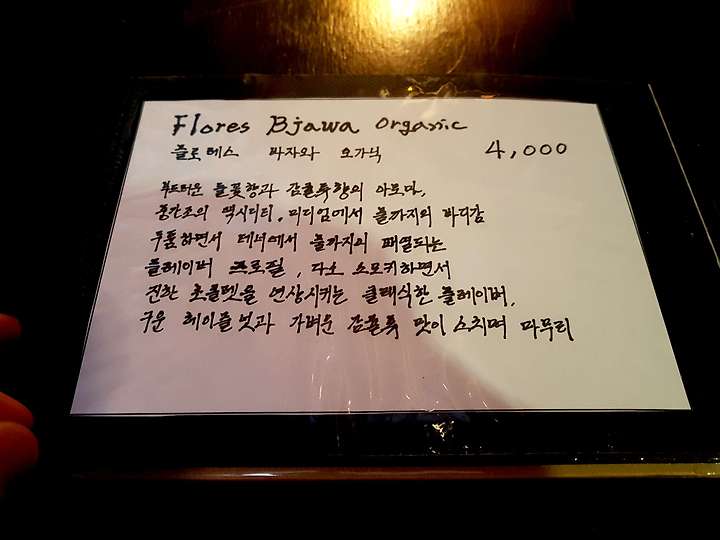 Flores Bjawa Organic
플로레스 바자와 오가닉 4,000
부드러운 들꽃향과 감귤류향의 아로마.
중간조의 액시더티. 미디엄에서 풀까지의 바디감
무품하면서 테너에서 풀까지의 패열되는
플레이버 프로필, 다소 스모키하면서
진한 초콜렛을 연상시키는 클래식한 플레이버.
구운 헤이즐넛과 가벼운 감귤류 맛이 스치며 마무리